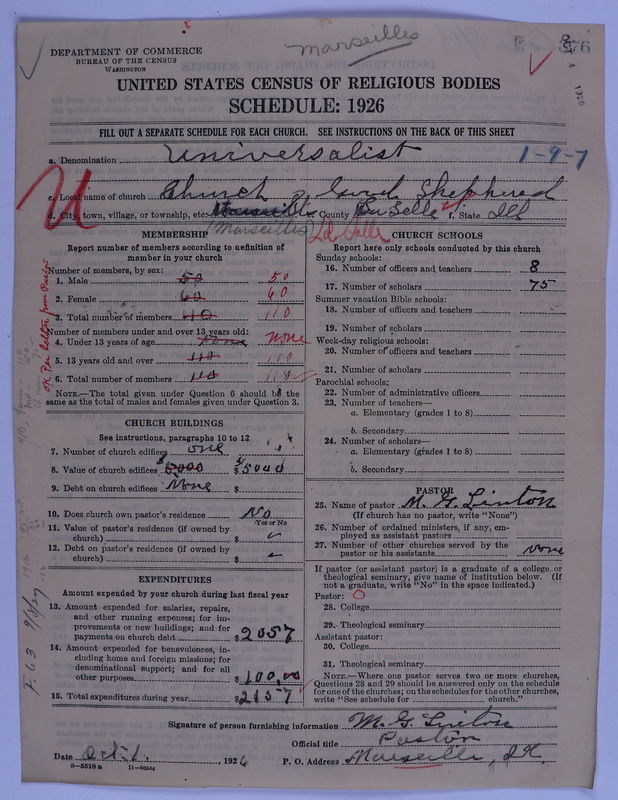 Marseilles
376
DEPARTMENT OF COMMERCE
BUREAU OF THE CENSUS
WASHINGTON
UNITED STATES CENSUS OF RELIGIOUS BODIES
SCHEDULE: 1926
FILL OUT A SEPARATE SCHEDULE FOR EACH CHURCH. SEE INSTRUCTIONS ON THE BACK OF THIS SHEET
a. Denomination Universalist 1-9-7
c. Local name of church Church Good Shepherd
d. City, town, village, or township, etc. County La Salle f. State Ill
Marseilles La Salle
U
MEMBERSHIP
Report number of members according to definition of member in your church
Number of members, by sex:
1. Male 50 50
2. Female 60 60
3. Total number of members 110 110
Number of members under and over 13 years old:
4. Under 13 years of age None None
5. 13 years old and over 110 110
6. Total number of members 110 110
NOTE.—The total given under Question 6 should be the same as the total of males and females given under Question 3.
OK Per letter from Pastor
CHURCH BUILDINGS
See instructions, paragraphs 10 to 12
7. Number of church edifices one
8. Value of church edifices $5000 $5000
9. Debt on church edifices None $
10. Does church own pastor's residence No
Yes or No
11. Value of pastor's residence (if owned by church) $
12. Debt on pastor's residence (if owned by church) $
EXPENDITURES
Amount expended by your church during last fiscal year
13. Amount expended for salaries, repairs, and other running expenses; for improvements or new buildings; and for payments on church debt $2057
14. Amount expended for benevolences, including home and foreign missions; for denominational support; and for all other purposes $100.00
15. Total expenditures during year $2157
F. 63 9/8/27
CHURCH SCHOOLS
Report here only schools conducted by this church
Sunday schools:
16. Number of officers and teachers 8
17. Number of scholars 75
Summer vacation Bible schools:
18. Number of officers and teachers
19. Number of scholars
Week-day religious schools:
20. Number of officers and teachers
21. Number of scholars
Parochial schools:
22. Number of administrative officers
23. Number of teachers—
a. Elementary (grades 1 to 8)
b. Secondary
24. Number of scholars—
a. Elementary (grades 1 to 8)
b. Secondary
PASTOR
25. Name of pastor M. G. Linton
(If church has no pastor, write "None")
26. Number of ordained ministers, if any, employed as assistant pastors
27. Number of other churches served by the pastor or his assistants None
If pastor (or assistant pastor) is a graduate of a college or theological seminary, give name of institution below. (If not a graduate, write "No" in the space indicated.)
Pastor:
28. College
29. Theological seminary
Assistant pastor:
30. College
31. Theological seminary
NOTE.—Where one pastor serves two or more churches, Questions 28 and 29 should be answered only on the schedule for one of the churches; on the schedules for the other churches, write "See schedule for church."
Signature of person furnishing information M. G. Linton
Official title Pastor
Date Oct. 1, 1926 P. O. Address Marseilles, Ill
8-5518a 11-9044